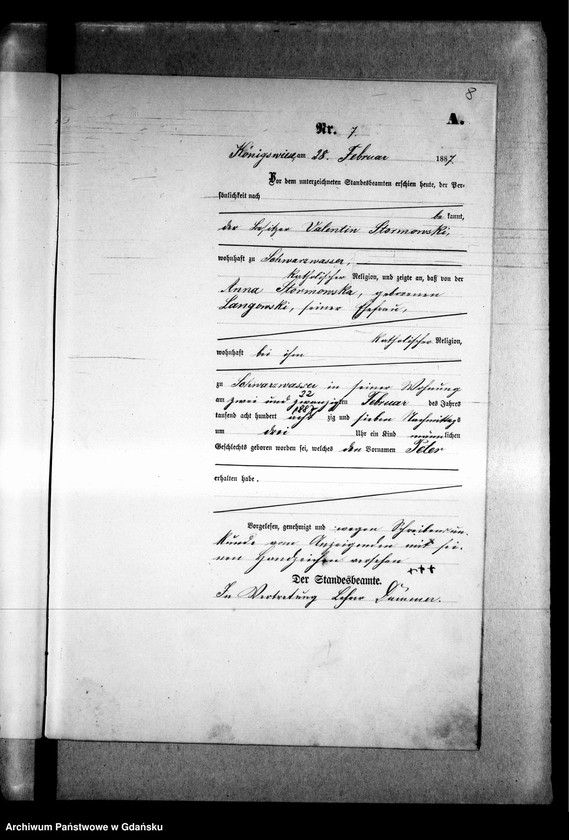 8
A.
Nr. 7.
Königswiese, am 28. Februar 1887.
Vor dem unterzeichneten Standesbeamten erschien heute, der Per-
sönlichkeit nach
be kannt,
der Besitzer Valentin Stormowski,
wohnhaft zu Schwarzwasser,
katholischer Religion, und zeigte an, daß von der
Anna Stormowska, geborenen
Langowski, seiner Ehefrau,
katholischer Religion,
wohnhaft bei ihm
zu Schwarzwasser in seiner Wohnung
22
am zwei und zwanzigsten Februar des Jahres
1887
tausend acht hundert acht zig und sieben Nachmittags
um drei Uhr ein Kind männlichen
Geschlechts geboren worden sei, welches den Vornamen Peter
erhalten habe.
Vorgelesen, genehmigt und wegen Schreibensun-
kunde vom Anzeigenden mit sei-
nen Handzeichen versehen
+++
Der Standesbeamte.
In Vertretung Lehrer Dammer.
Archiwum Państwowe w Gdańsku